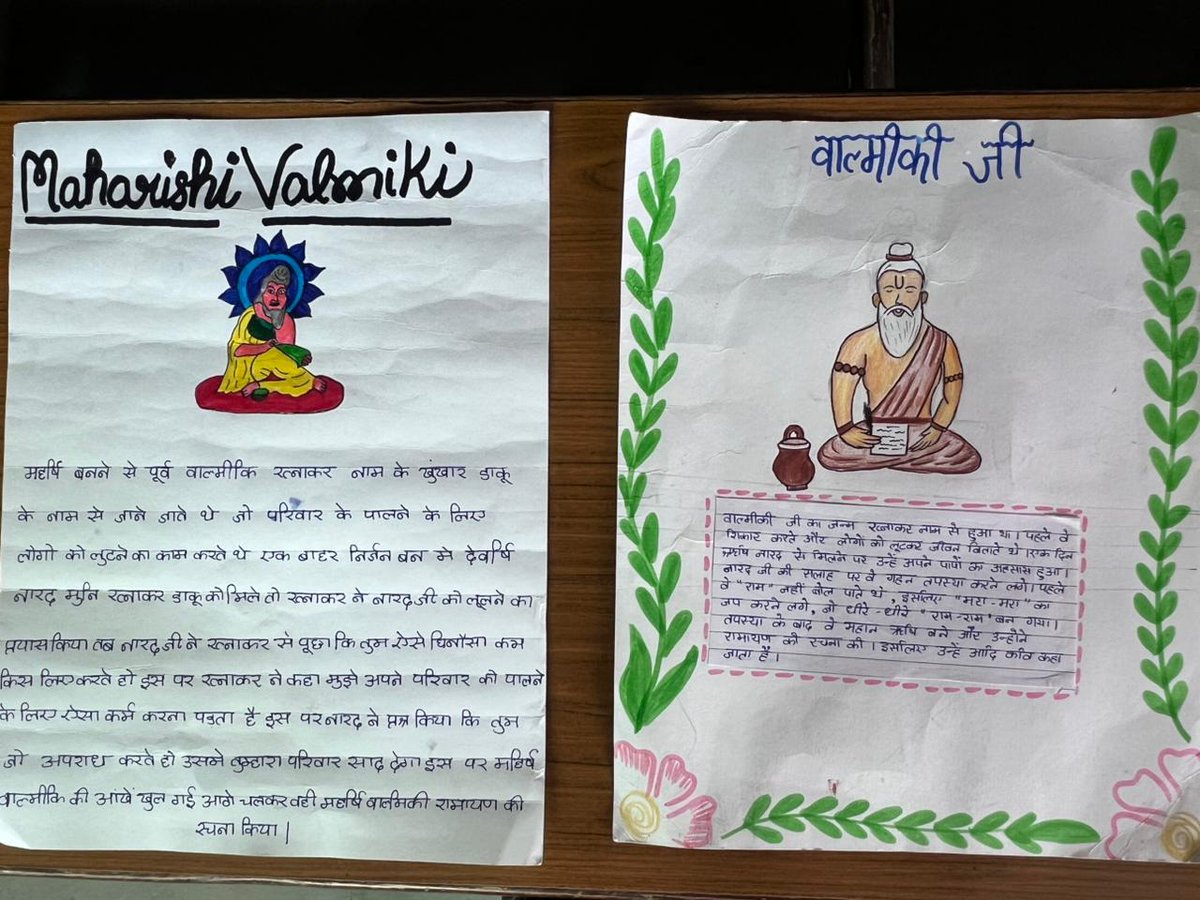 Maharishi Valmiki
महर्षि बनने से पूर्व वाल्मीकि रत्नाकर नाम के खुंखार डाकू
के नाम से जाने जाते थे जो परिवार के पालने के लिए
लोगो को लुटने का काम करते थे एक बार निर्जन बन मे देवर्षि
नारद मुनि रत्नाकर डाकू को मिले तो रत्नाकर ने नारद जी को लूटने का
प्रयास किया तब नारद जी ने रत्नाकर से पूछा कि तुम ऐसे घिनौंसा कम
किस लिए करते हो इस पर रत्नाकर ने कहा मुझे अपने परिवार को पालने
के लिए ऐसा कर्म करना पड़ता है इस पर नारद ने प्रश्न किया कि तुम
जो अपराध करते हो उसमे तुम्हारा परिवार साद देगा इस पर महर्षि
वाल्मीकि की आंखें खुल गई आगे चलकर वही महर्षि वाल्मिकी रामायण की
रचना किया |
वाल्मीकी जी
वाल्मीकी जी का जन्म रत्नाकर नाम से हुआ था। पहले वे
शिकार करते और लोगों को लूटकर जीवन बिताते थे। एक दिन
ऋषि नारद से मिलने पर उन्हें अपने पापों का अहसास हुआ।
नारद जी की सलाह पर वे गहन तपस्या करने लगे। पहले
वे "राम" नहीं बोल पाते थे, इसलिए "मरा-मरा" का
जप करने लगे, जो धीरे-धीरे "राम-राम" बन गया।
तपस्या के बाद वे महान ऋषि बने और उन्होंने
रामायण की रचना की। इसलिए उन्हें आदि कवि कहा
जाता है।